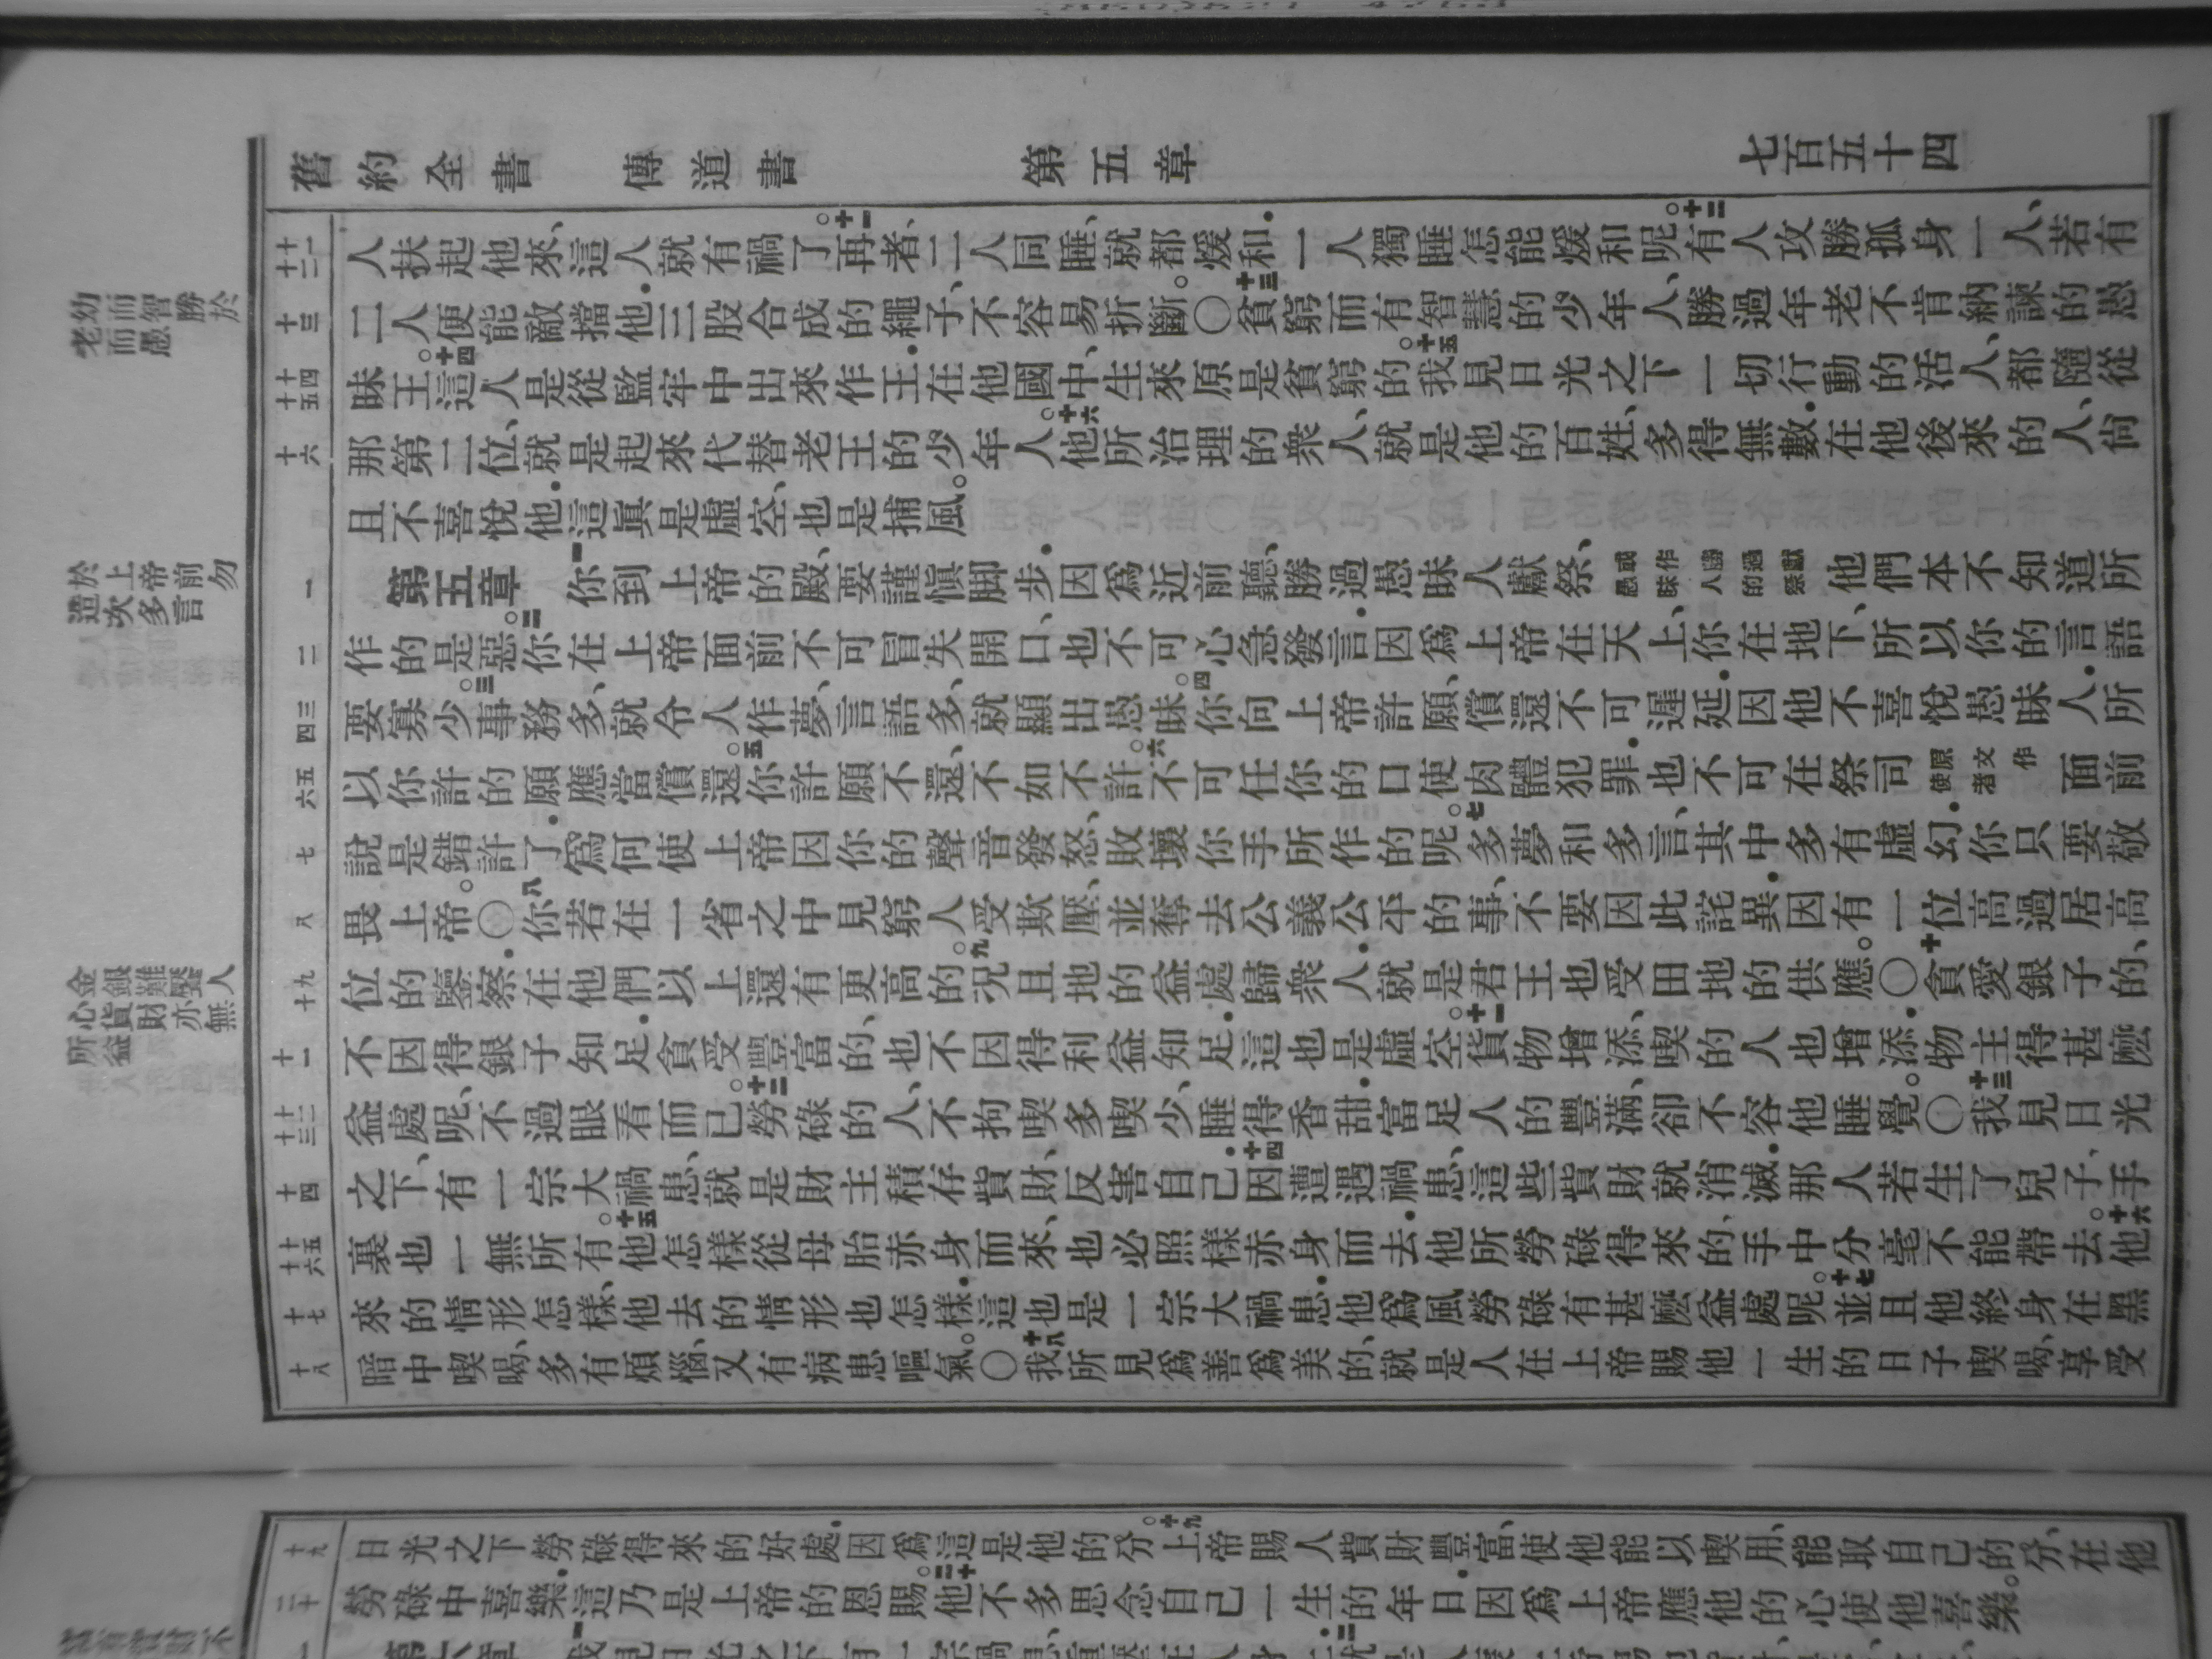 舊約全書 傳道書 第五章 七百五十四
十一 十二
人扶起他來、這人就有禍了。十一再者、二人同睡、就都煖和．一人獨睡怎能煖和呢。十二有人攻勝孤身一人、若有
十三
二人便能敵擋他．三股合成的繩子、不容易折斷。〇十三貧窮而有智慧的少年人、勝過年老不肯納諫的愚
十四 十五
昧王。十四這人是從監牢中出來作王．在他國中、生來原是貧窮的。十五我見日光之下一切行動的活人、都隨從
十六
那第二位、就是起來代替老王的少年人。十六他所治理的衆人、就是他的百姓、多得無數．在他後來的人、尙
且不喜悅他．這眞是虛空、也是捕風。
一
第五章 一你到上帝的殿、要謹愼脚步．因爲近前聽、勝過愚昧人獻祭、或作勝過獻愚昧人的祭他們本不知道所
二
作的是惡。二你在上帝面前不可冒失開口、也不可心急發言．因爲上帝在天上、你在地下、所以你的言語
三 四
要寡少。三事務多、就令人作夢、言語多、就顯出愚昧。四你向上帝許願、償還不可遲延．因他不喜悅愚昧人．所
五 六
以你許的願應當償還。五你許願不還、不如不許。六不可任你的口使肉體犯罪．也不可在祭司原文作使者面前
七
說是錯許了．爲何使上帝因你的聲音發怒、敗壞你手所作的呢。七多夢和多言、其中多有虛幻．你只要敬
八
畏上帝。〇八你若在一省之中見窮人受欺壓、並奪去公義公平的事、不要因此詫異．因有一位高過居高
九 十
位的鑒察．在他們以上還有更高的。九況且地的益處歸衆人．就是君王也受田地的供應。〇十貪愛銀子的、
十一
不因得銀子知足．貪受豐富的、也不因得利益知足．這也是虛空。十一貨物增添、喫的人也增添．物主得甚麽
十二 十三
益處呢、不過眼看而已。十二勞碌的人、不拘喫多喫少、睡得香甜．富足人的豐滿、卻不容他睡覺。〇十三我見日光
十四
之下、有一宗大禍患、就是財主積存貲財、反害自己．十四因遭遇禍患、這些貲財就消滅．那人若生了兒子、手
十五 十六
裏也一無所有。十五他怎樣從母胎赤身而來、也必照樣赤身而去．他所勞碌得來的、手中分毫不能帶去。十六他
十七
來的情形怎樣、他去的情形也怎樣．這也是一宗大禍患．他爲風勞碌有甚麽益處呢。十七並且他終身在黑
十八
暗中喫喝、多有煩惱、又有病患嘔氣。〇十八我所見爲善爲美的、就是人在上帝賜他一生的日子喫喝、享受
幼而智勝於
老而愚
於上帝前勿
造次多言
金銀難饜人
心貨財亦無
所益
十九
日光之下勞碌得來的好處．因爲這是他的分。十九上帝賜人貲財豐富、使他能以喫用、能取自己的分、在他
二十
勞碌中喜樂．這乃是上帝的恩賜。二十他不多思念自己一生的年日．因爲上帝應他的心使他喜樂。